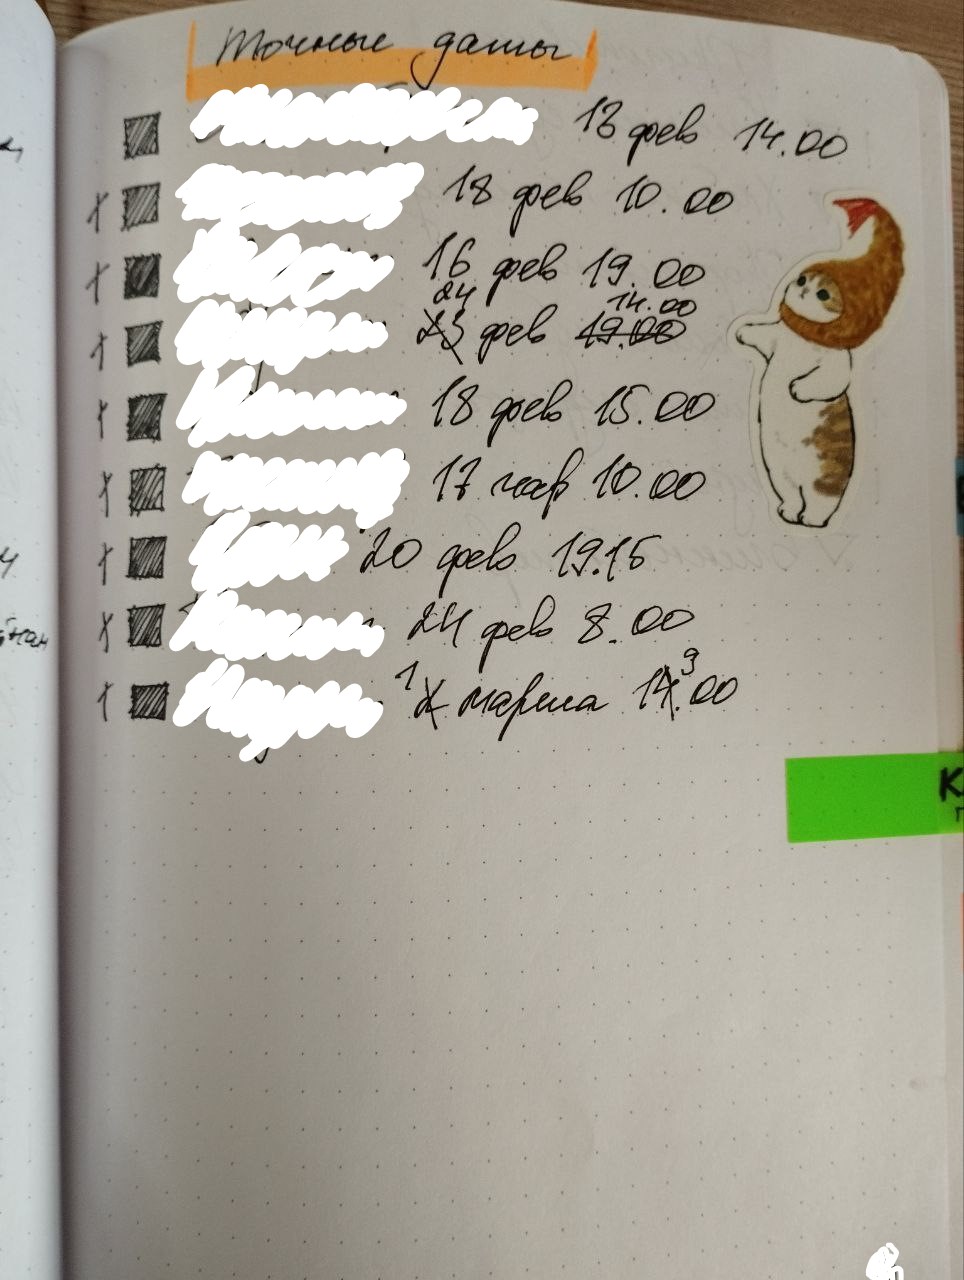 Точные даты
13 фев 14.00
18 фев 10.00
16 фев 19.00
24 14.00
23 фев 19.00
18 фев 15.00
17 мар 10.00
20 фев 19.15
24 фев 8.00
1 марта 9.00